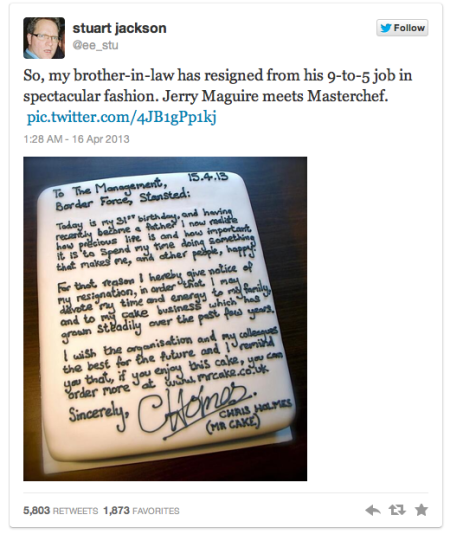 stuart jackson
@ee_stu
Follow
So, my brother-in-law has resigned from his 9-to-5 job in
spectacular fashion. Jerry Maguire meets Masterchef.
pic.twitter.com/4JB1gPp1kj
1:28 AM - 16 Apr 2013
15.4.13
To The Management,
Border Force, Stansted:
Today is my 31st birthday, and having
recently become a father I now realise
how precious life is and how important
it is to spend my time doing something
that makes me, and other people, happy.
For that reason I hereby give notice of
my resignation, in order that I may
devote my time and energy to my family,
and to my cake business which has
grown steadily over the past few years.
I wish the organisation and my colleagues
the best for the future and I remind
you that, if you enjoy this cake, you can
order more at www.mrcake.co.uk
Sincerely, CHolmes.
CHRIS HOLMES
(MR CAKE)
5,803 RETWEETS 1,873 FAVORITES